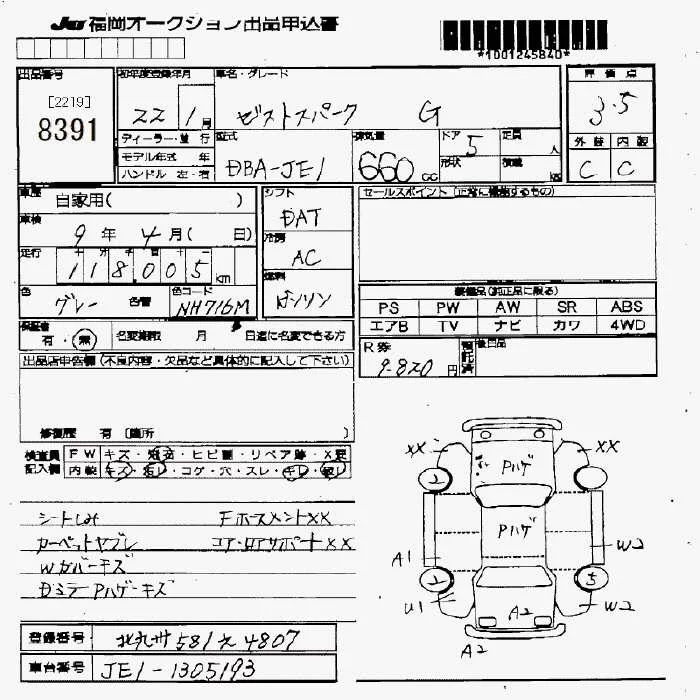 JU 福岡オークション出品申込書
*1001245840*
出品番号
[2219]
8391
初年度登録年月
22 1月
ディーラー・並行
モデル年式 年
ハンドル 左・右
車名・グレード
ゼストスパーク G
型式
DBA-JE1
排気量
660 CC
ドア 5
形状
定員 人
積載 kg
評価点
3.5
外装 内装
C C
車歴
自家用( )
車検
9年 4月( 日)
走行
十 万 千 百 十
118,005 km
色
グレー 色替
色コード
NH716M
シフト
DAT
冷房
AC
燃料
ガソリン
セールスポイント (正常に機能するもの)
装備品(純正品に限る)
PS PW AW SR ABS
エアB TV ナビ カワ 4WD
保証書
有・無
名変期限 月 日迄に名変できる方
R券
9.820円
預託済
後日品
出品店申告欄(不良内容・欠品など具体的に記入して下さい)
修復歴 有 〔箇所 〕
検査員
記入欄
FW キズ・飛石・ヒビ割・リペア跡・X要
内装 キズ・汚レ・コゲ・穴・スレ・キレ・破レ
シートしみ Fホースメント××
カーペットヤブレ コア・ロアサポート××
Wカバーキズ
DミラーPハゲ・キズ
登録番号 北九州 581 え 4807
車台番号 JE1-1305193
×× ××
Pハゲ
2
Pハゲ
A1 W2
2 5
U1 A2 W2
A2